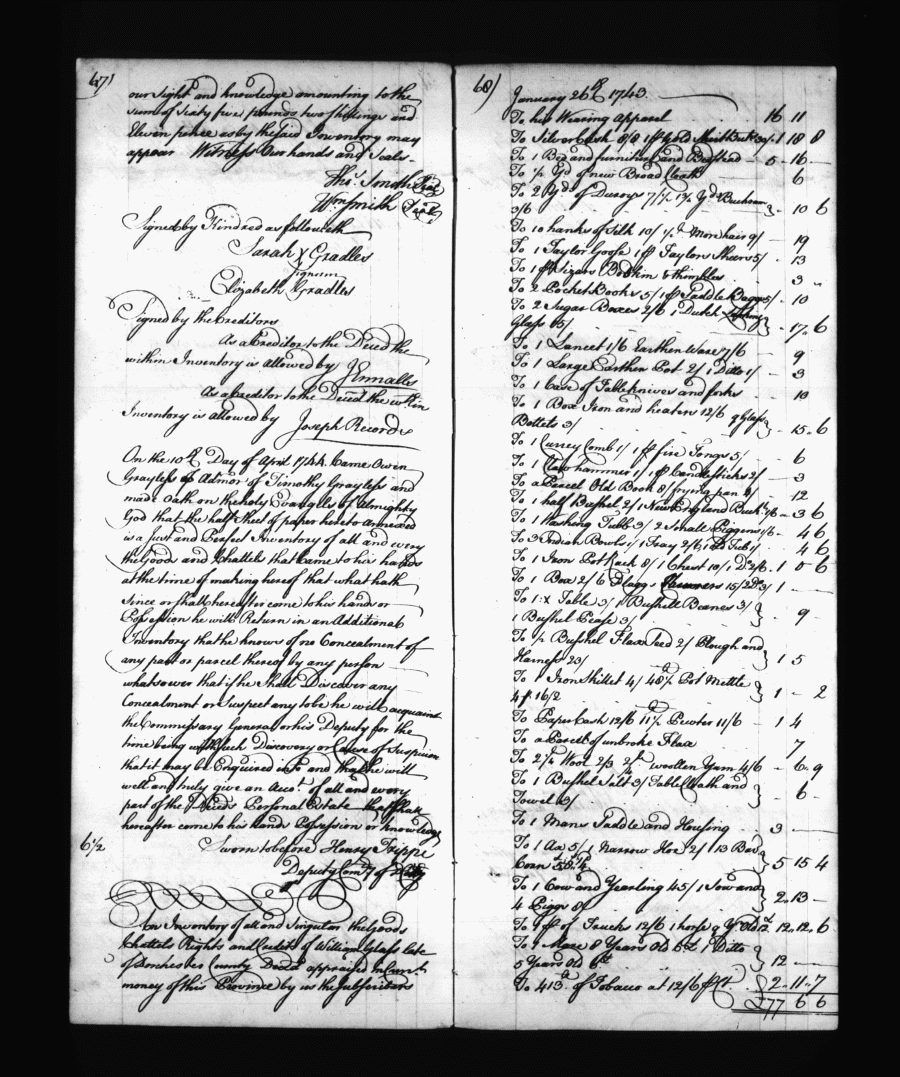 67)
our sight and knowledge amounting to the
sum of sixty five pounds two shillings and
Eleven pence as by the said Inventory may
appear Witness Our hands and Seals.
Thos. Smith Seal
Wm Smith Seal
Signed by Kindred as followeth
Sarah X Gradles
signum
Elizabeth Gradles
Signed by the Creditors
As a Creditor to the Decd the
within Inventory is allowed by J Ennalls
As a Creditor to the Deced the within
Inventory is allowed by Joseph Records
On the 10th Day of April 1744 Came Owen
Grayless Admor of Timothy Grayless and
made Oath on the holy Evangels of Almighty
God that the half Sheet of paper hereto annexed
is a just and Perfect Inventory of all and every
the Goods and Chattels that Came to his hands
at the time of making hereof that what hath
Since or shall hereafter come to his hands or
Possession he will Return in an Additional
Inventory that he knows of no Concealment of
any part or parcel thereof by any person
whatsoever that if he Shall Discover any
Concealment or Suspect any to be he will acquaint
the Commissary General or his Deputy for the
time being with such Discovery or Cause of Suspicion
that it may be Enquired into and that he will
well and truly give an Acct. of all and every
part of the Deced's Personal Estate that shall
hereafter come to his hands Possession or knowledge
6 1/2
Sworn to before Henry Trippe
Deputy Comry of
An Inventory of all and Singular the Goods
Chattels Rights and Credits of William Glass late
of Dorchester County Deced appraised in Curr.t
money of this Province by us the Subscribers
68)
January 26th 1743.
To his Wearing Apparel 16 11
To Silver Cash 8/8 1 1 18 8
To 1 Bed and furniture and Bedstead 5 16
To 1/2 Yd of new Broad Cloth 6
To 2 Yds of Duroys 7/ Yd Buckram
3/6 3 10 6
To 10 hanks of Silk 10/ Mohair 9/ 19
To 1 Taylor Goose 1 pr Taylors Shears 5/ 13
To 1 pr Sizars Bodkin & thimbles 3
To 2 Pocket Books 5/ 1 pr Saddle Baggs 5/ 10
To 2 Sugar Boxes 2/6 1 Dutch Looking
Glass 15/ 17 6
To 1 Lancet 1/6 Earthen Ware 7/6 9
To 1 Large Earthen Pot 2/ 1 Ditto 1/ 3
To 1 Case of Table knives and forks 10
To 1 Box Iron and heaters 12/6 9 Glass
Bottels 3/ 15 6
To 1 Currey Comb 1/ 1 pr fire Tongs 5/ 6
To 1 Claw hammer 1/ 1 pr Candlesticks 2/ 3
To a Parcel Old Book 8/ frying pan 4/ 12
To 1 half Bushel 2/ 1 New England Buckt 1/6 3 6
To 1 Washing Tubb 3/ 2 Small Piggens 1/6 4 6
To 3 Indian Bowls 1/ 1 Tray 2/6 1 old Tub 1/ 4 6
To 1 Iron Pot Rack 8/ 1 Chest 10/ 1 Do 2/6 1 0 6
To 1 Box 2/6 Flaggs 15/ 2 Do 3/ 1
To 1 X Table 3/ 1 Bushell Beanes 3/
1 Bushel Pease 3/ 9
To 1/2 Bushel Flaxseed 2/ Plough and
Harness 23/ 1 5
To 1 Iron Skillet 4/ 48 lb Pot Mettle
4 pr 16/2 1 2
To Paper Cash 12/6 11 lb Pewter 11/6 1 4
To a Parcel of unbroke Flax 7
To 2 lb Wool 2/3 woollen Yarn 4/6 6 9
To 1 Bushel Salt 3/ Table Cloath and
Towel 3/ 6
To 1 Mans Saddle and Housing 3
To 1 Ax 5/ 1 Narrow Hoe 2/ 13 Bar
Corn 5 15 4
To 1 Cow and Yearling 45/ 1 Sow and
4 Piggs 8/ 2 13
To 1 pr of 12/6 1 horse 9 Yr Old 12 12 12 6
To 1 Mare 8 Years Old 1 Ditto
5 Years Old 12
To 413 lb of Tobacco at 12/6 pr Ct. 2 11 7
£77 6 6